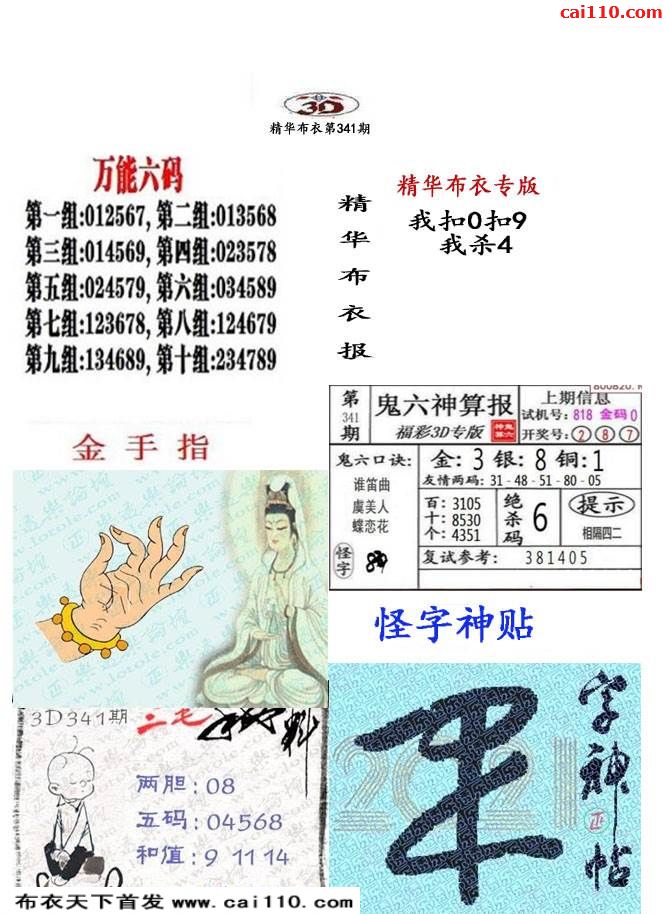 cai110.com
3D
精华布衣第341期
万能六码
第一组:012567,第二组:013568
第三组:014569,第四组:023578
第五组:024579,第六组:034589
第七组:123678,第八组:124679
第九组:134689,第十组:234789
精华布衣报
精华布衣专版
我扣0扣9
我杀4
金手指
第341期
鬼六神算报
福彩3D专版
上期信息
试机号:818 金码0
开奖号:②⑧⑦
鬼六口诀:
谁笛曲
虞美人
蝶恋花
怪字
金:3银:8铜:1
友情两码:31-48-51-80-05
百:3105
十:8530
个:4351
绝杀码
6
提示
相隔四二
复试参考: 381405
怪字神贴
3D341期
三毛
料
两胆:08
五码:04568
和值:9 11 14
字神帖
2021
布衣天下首发 www.cai110.com